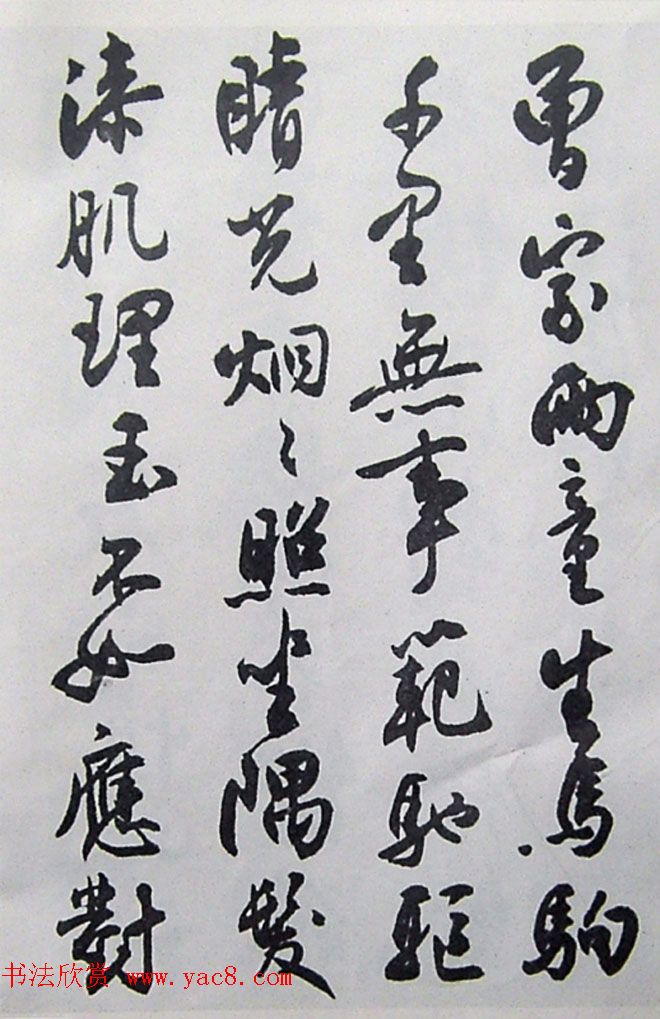 曾家兩童生馬駒
千里無事範馳驅
睛光烱〻照坐隅髮
漆肌理玉不如應對
书法欣赏 www.yac8.com